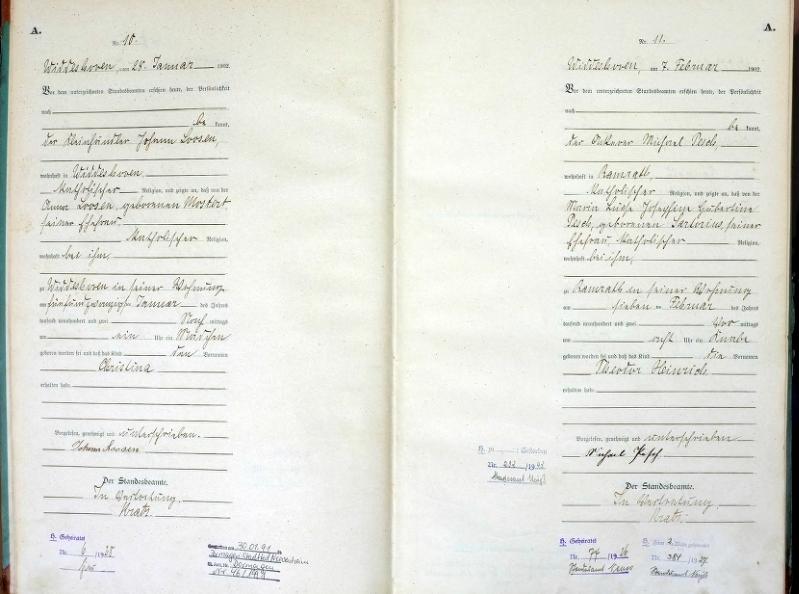 A.
Nr. 10.
Widdeshoven, am 28. Januar 1902.
Vor dem unterzeichneten Standesbeamten erschien heute, der Persönlichkeit
nach
be kannt,
der Kleinhändler Johann Loosen,
wohnhaft in Widdeshoven,
katholischer Religion, und zeigte an, daß von der
Anna Loosen, geborenen Mostert,
seiner Ehefrau,
katholischer Religion,
wohnhaft bei ihm,
zu Widdeshoven in seiner Wohnung
am fünfundzwanzigsten Januar des Jahres
tausend neunhundert und zwei Nach mittags
um ein Uhr ein Mädchen
geboren worden sei und daß das Kind den Vornamen
Christina
erhalten habe.
Vorgelesen, genehmigt und unterschrieben.
Johann Loosen
Der Standesbeamte.
In Vertretung,
H. Geheiratet
Nr. 6 /1928
30.01.91
Dormagen
A.
Nr. 11.
Widdeshoven, am 7. Februar 1902.
Vor dem unterzeichneten Standesbeamten erschien heute, der Persönlichkeit
nach
be kannt,
der Ackerer Michael Pesch,
wohnhaft in Ramrath,
katholischer Religion, und zeigte an, daß von der
Maria Luise Josephine Hubertine
Pesch, geborenen Sartorius, seiner
Ehefrau, katholischer Religion,
wohnhaft bei ihm,
zu Ramrath in seiner Wohnung
am sieben ten Februar des Jahres
tausend neunhundert und zwei Vor mittags
um acht Uhr ein Knabe
geboren worden sei und daß das Kind die Vornamen
Theodor Heinrich
erhalten habe.
Vorgelesen, genehmigt und unterschrieben
Michael Pesch.
Der Standesbeamte.
In Vertretung,
Gestorben
Nr. 232 /1942
H. Geheiratet
Nr. 77 /1926
Standesamt Neuss
Nr. 384 /1937